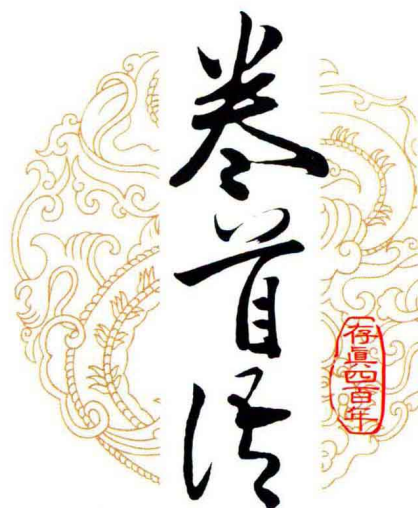 卷首语
存真四百年